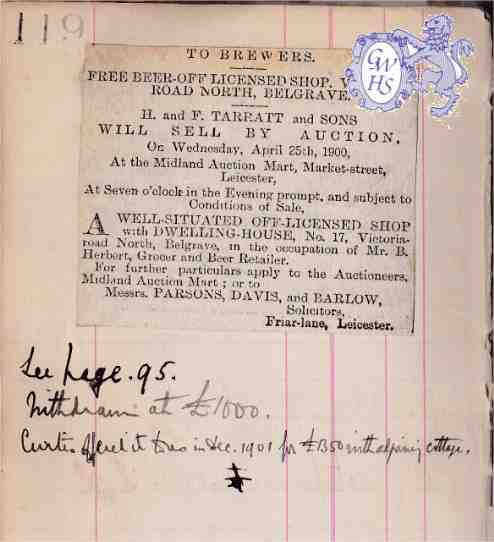 119
GWHS
TO BREWERS.
FREE BEER-OFF LICENSED SHOP, V
ROAD NORTH, BELGRAVE.
H. and F. TARRATT and SONS
WILL SELL BY AUCTION,
On Wednesday, April 25th, 1900,
At the Midland Auction Mart, Market-street,
Leicester,
At Seven o'clock in the Evening prompt, and subject to
Conditions of Sale,
A WELL-SITUATED OFF-LICENSED SHOP
with DWELLING-HOUSE, No. 17, Victoria-
road North, Belgrave, in the occupation of Mr. B.
Herbert, Grocer and Beer Retailer.
For further particulars apply to the Auctioneers,
Midland Auction Mart; or to
Messrs. PARSONS, DAVIS, and BARLOW,
Solicitors,
Friar-lane, Leicester.
See page. 95.
Withdrawn at £1000.
Curtis offered it in Dec. 1901 for £1350 with adjoining cottage.